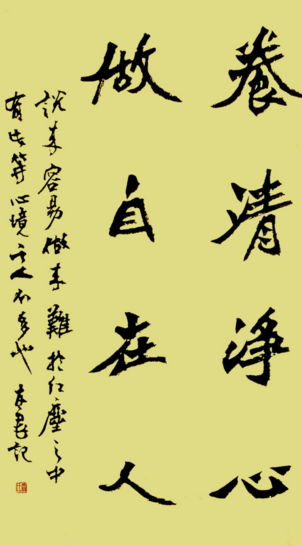 養清淨心
做自在人
說來容易做來難於紅塵之中
有此等心境之人不多也